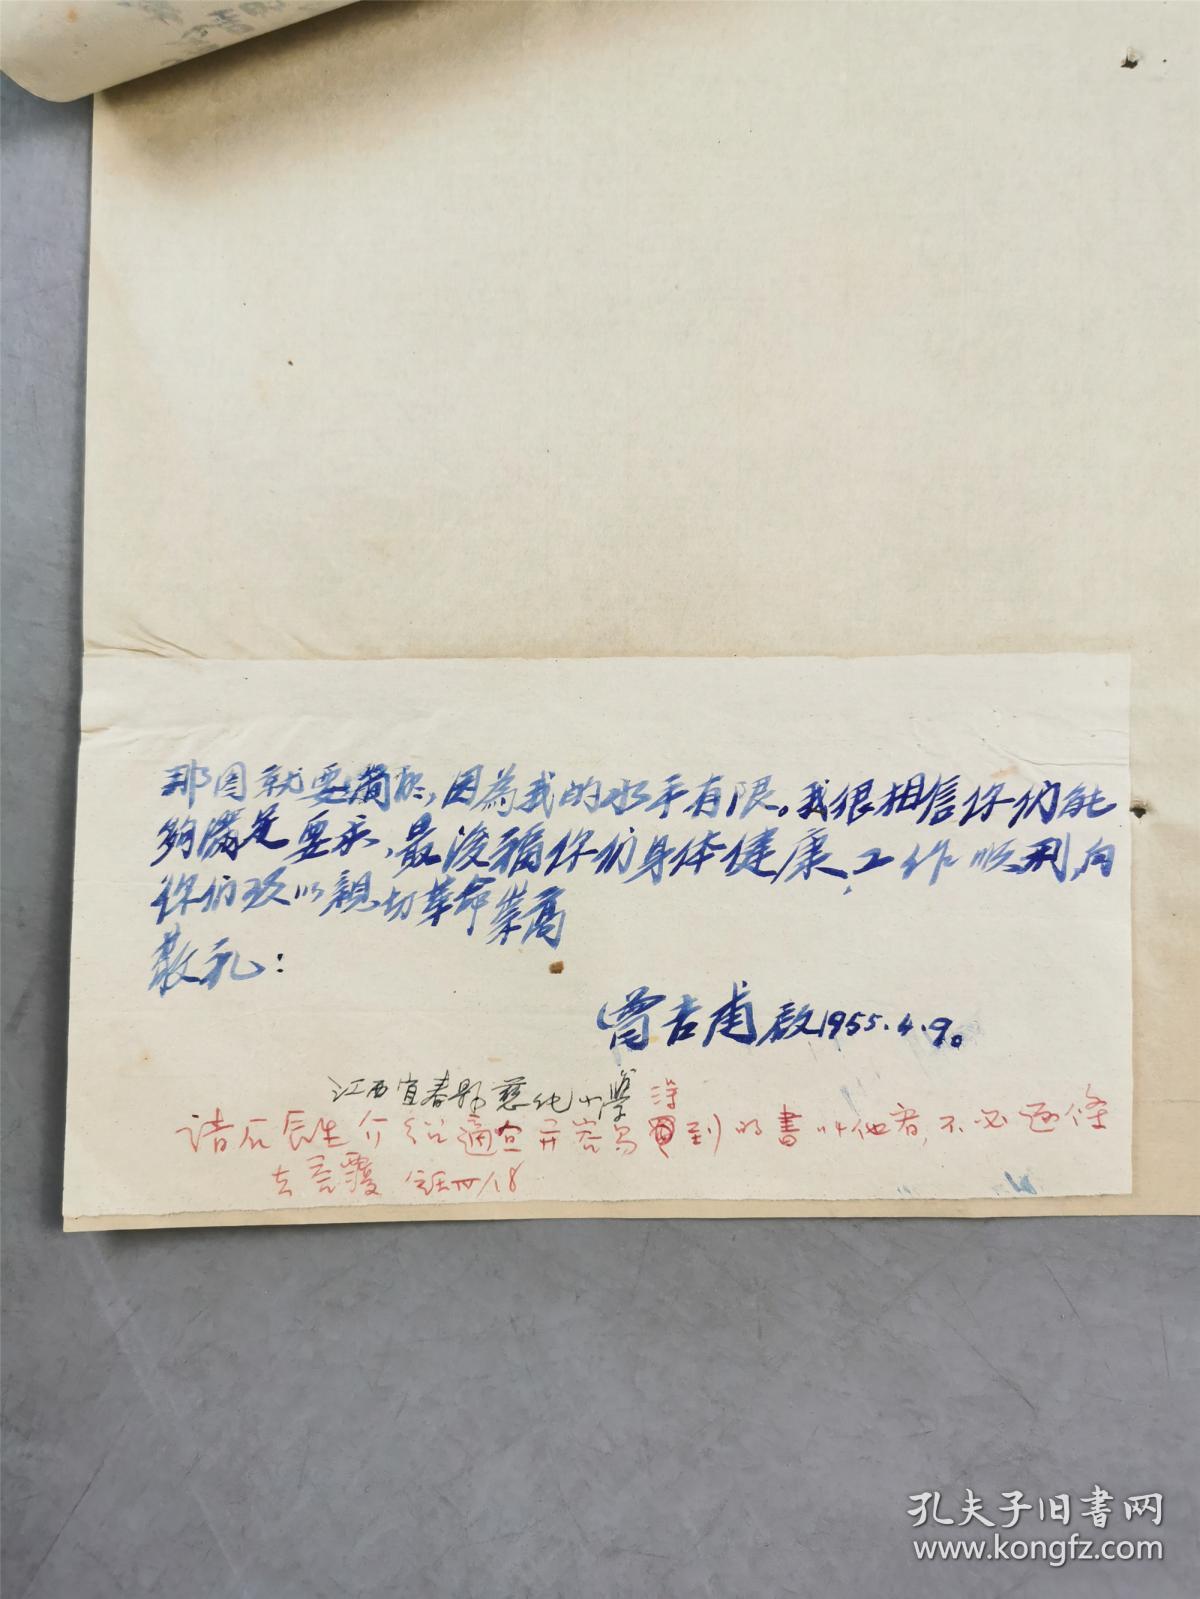 那图就要简於,因為我的水平有限。我很相信你们能
夠满足要求,最後福你们身体健康、工作顺利,向
你们致以親切革命崇高
敬礼:
曾吉甫啟1955.4.9。
江西宜春县慈化小学
请石长生介绍適宜并容易買得到的書叫他看,不必逐條
去
四/18
孔夫子旧书网
www.kongfz.com